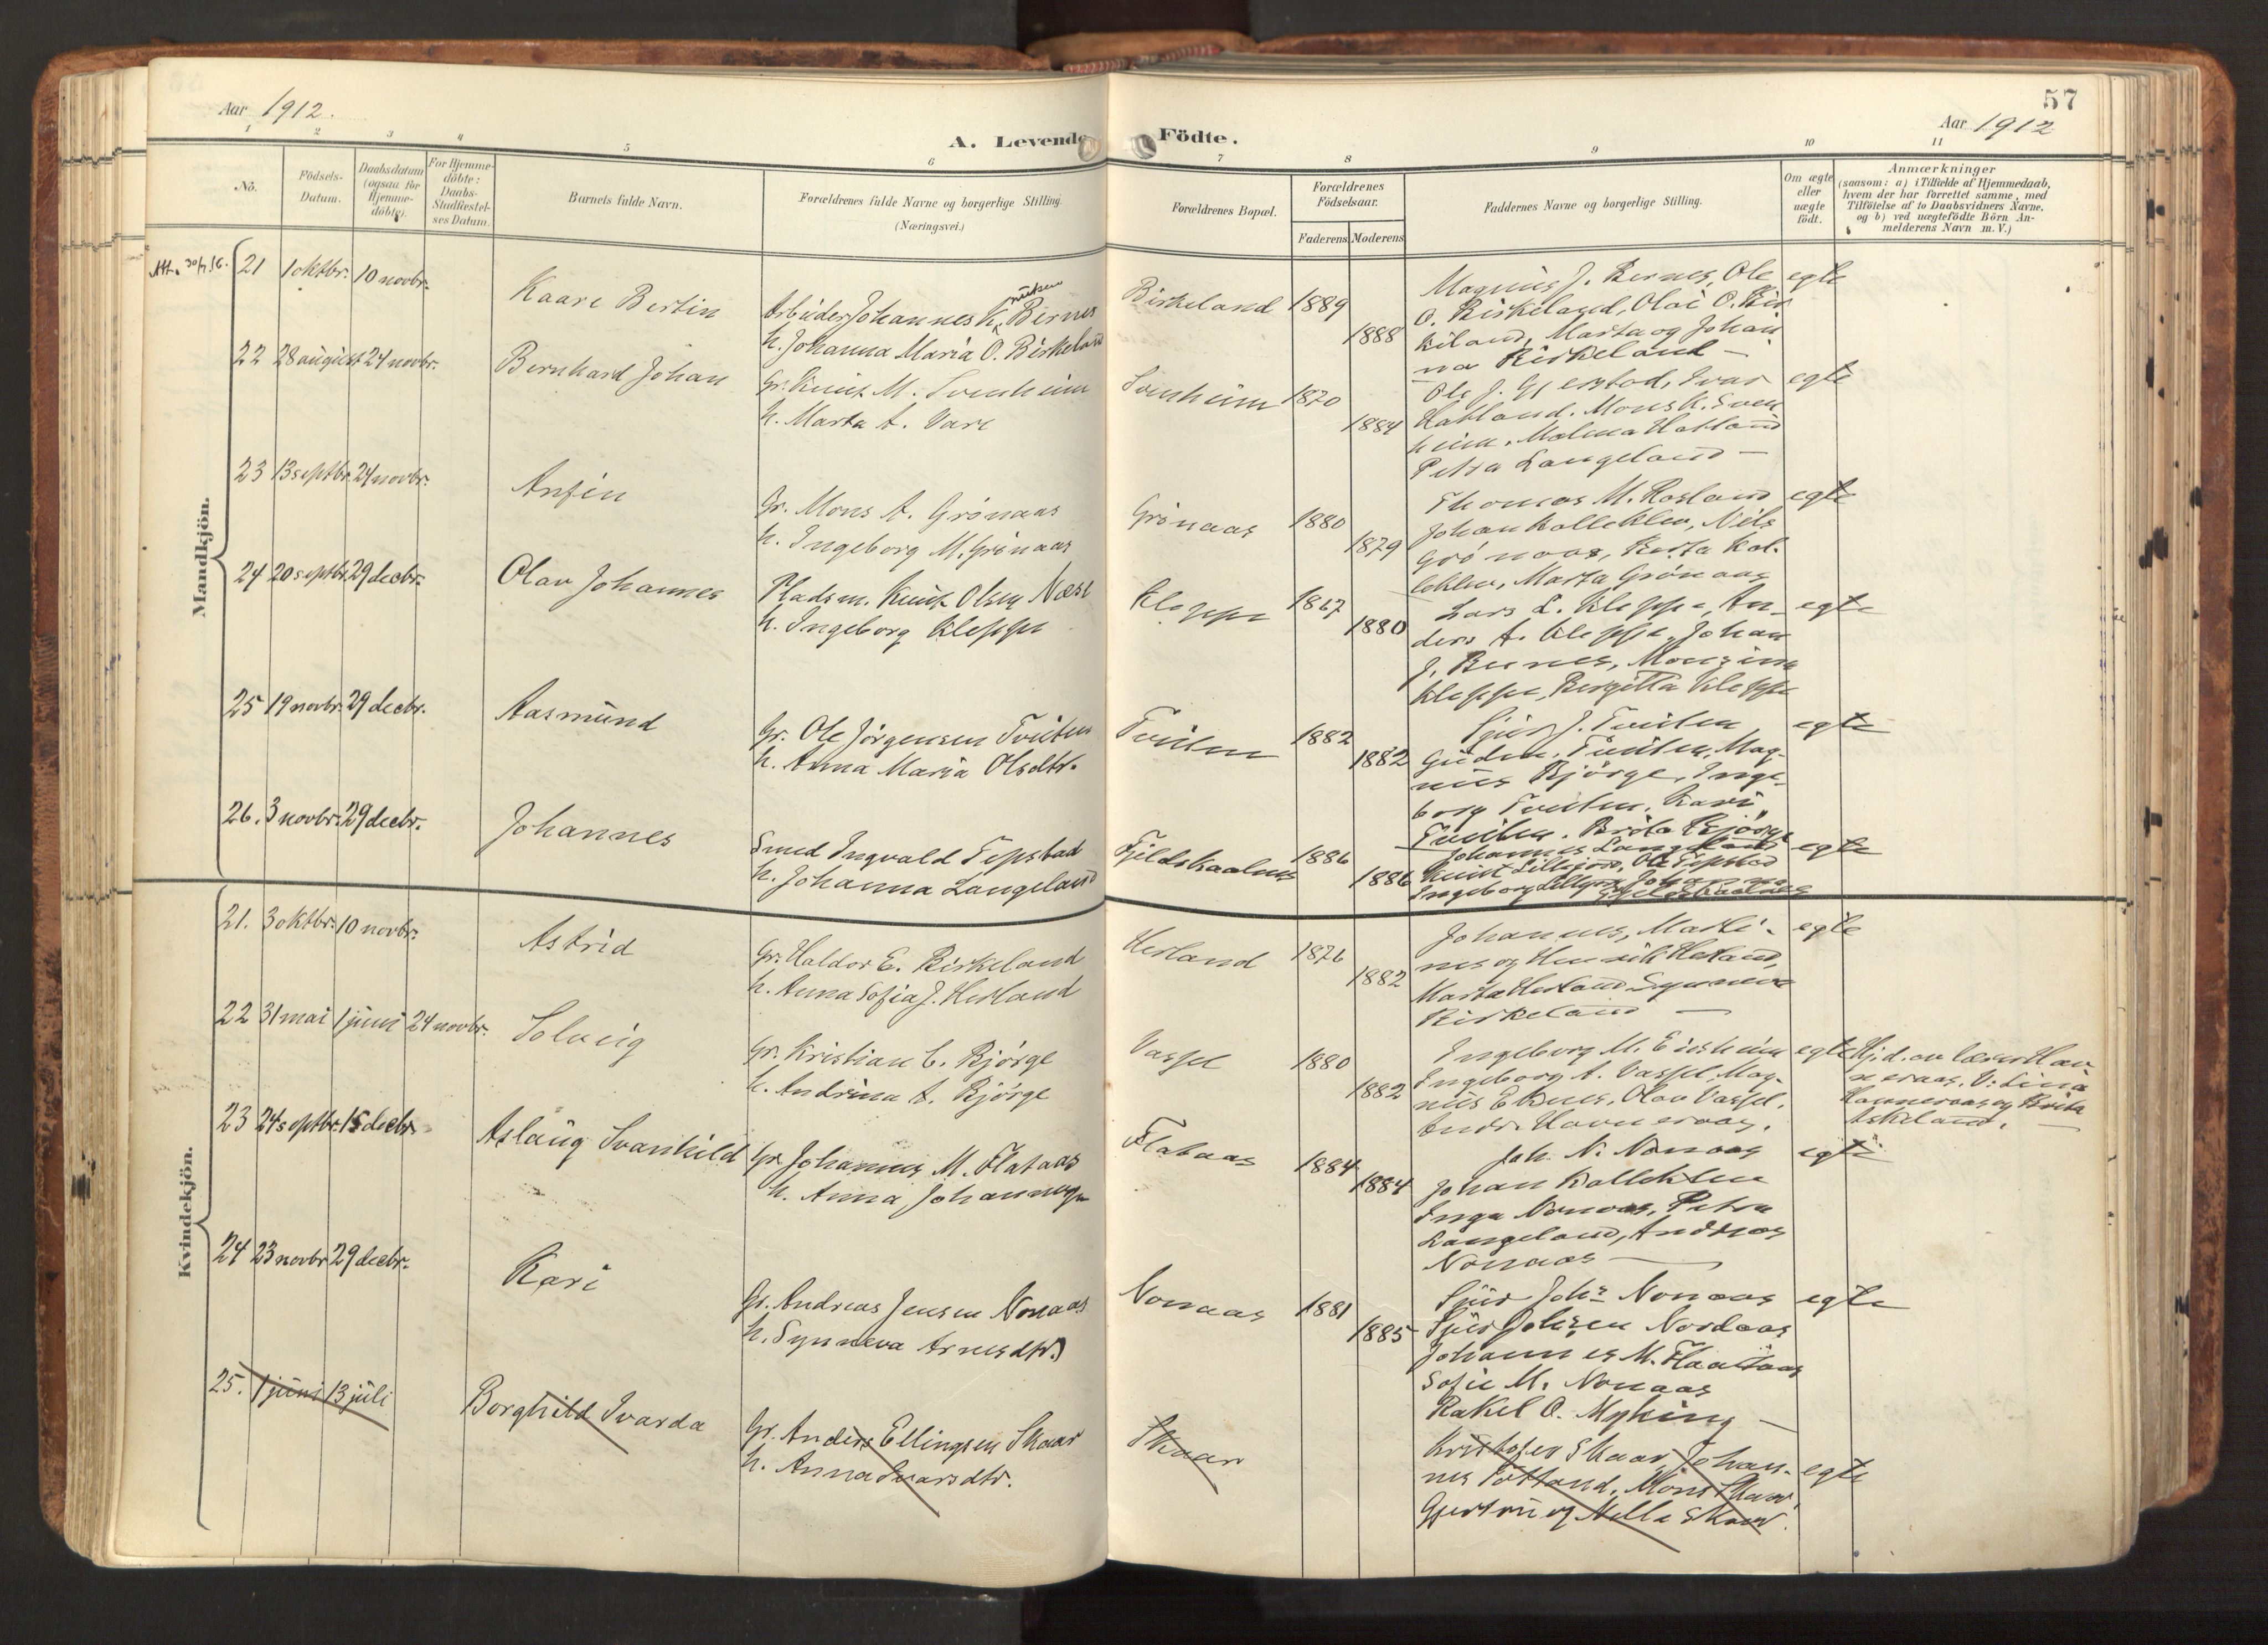 Aar 1912.
57
Aar 1912
A. Levende Födte.
1 2 3 4 5 6 7 8 9 10 11
No.
Födsels-
Datum.
Daabsdatum
(ogsaa for
Hjemme-
döbte).
For Hjemme-
döbte:
Daabs-
Stadfæstel-
ses Datum.
Barnets fulde Navn.
Forældrenes fulde Navne og borgerlige Stilling.
(Næringsvei.)
Forældrenes Bopæl.
Forældrenes
Födselsaar.
Faderens Moderens
Faddernes Navne og borgerlige Stilling.
Om ægte
eller
uægte
födt.
Anmærkninger
(saasom: a) i Tilfælde af Hjemmedaab,
hvem der har forrettet samme, med
Tilföielse af to Daabsvidners Navne.
og b) ved uægtefödte Börn An-
melderens Navn m. V.)
Mandkjön.
Att. 30/7.16.
21 1 oktbr. 10 novbr.
Kaare Bertin
Arbeider Johannes K. Birnes
h. Johanna Maria O. Birkeland
Birkeland 1889
1888
Magnus J. Bernes, Ole
O. Birkeland, Olai O. Bir
keland, Marta og Johan
na Birkeland —
egte
22 28 august 24 novbr.
Bernhard Johan
Gr. Knut M. Svenheim
h. Marta A. Vare
Svenheim 1870
1884
Ole J. Gjerstad, Ivar
Hatland. Mons K. Sven
heim. Malena Hatland
Petra Langeland —
egte
23 13 septbr. 24 novbr.
Anfin
Gr. Mons A. Grönaas
h. Ingeborg M. Grönaas
Grönaas 1880
1879
Thomas M. Rosland
Johan Kalleklev, Nils
Grönaas, Berta Kal-
leklev, Marta Grönaas
egte
24 20 septbr. 29 decbr.
Olav Johannes
Pladsm. Knut Olsen Næse
h. Ingeborg Kleppe
Kleppe 1867
1880
Lars L. Kleppe, An-
ders A. Kleppe, Johan
J. Bernes, Monsina
Kleppe, Bergitta Kleppe
egte
25 19 novbr. 29 decbr.
Aasmund
Gr. Ole Jörgensen Tveiten
h. Anna Maria Olsdtr.
Tveiten 1882
1882
Sjur J. Tveiten
Gudm. Tveiten, Mag-
nus Bjørge, Inge-
borg Tveiten, Kari
Tveiten. Brita Bjørge
egte
26. 3 novbr. 29 decbr.
Johannes
Smed Ingvald Tepstad
h. Johanna Langeland
Fjeldskaalnes 1886
1886
Johannes Langeland
Knut Lillejord, Ole Tepstad
Ingeborg Lillejord, Johanna
Fjeldskaalnes
egte
Kvindekjön.
21. 3 oktbr. 10 novbr.
Astrid
Gr. Haldor E. Birkeland
h. Anna Sofia J. Herland
Herland 1876
1882
Johannes, Marti-
nus og Henrik Herland,
Marta Herland Synneva
Birkeland —
egte
22 31 mai 1 juni 24 novbr.
Solveig
Gr. Kristian C. Bjørge
h. Andrina A. Bjørge
Vassel 1880
1882
Ingeborg M. Eidsheim
Ingeborg A. Vassel, Mag-
nus Eknes, Olav Vassel,
Andr. Havneraas.
egte
Hj.d. av lærer Hav
neraas. V: Lina
Havneraas og Brita
Askeland. —
23 24 septbr. 15 decbr.
Aslaug Svanhild
Gr. Johannes M. Flataas
h. Anna Johannesen
Flataas 1884
1884
Joh. N. Nonaas
Johan Kalleklev
Inga Nonaas, Petra
Langeland, Andreas
Nonaas —
egte
24 23 novbr. 29 decbr.
Kari
Gr. Andreas Jensen Nonaas
h. Synneva Arnesdtr.
Nonaas 1881
1885
Sjur Johs. Nonaas
Sjur Johsen Nordaas
Johannes M. Flaataas
Sofie M. Nonaas
Rakel O. Myking —
egte
25. 1 juni 13 juli
Borghild Ivarda
Gr. Anders Ellingsen Skaar
h. Anna Ivarsdtr.
Skaar
Kristofer Skaar, Johan-
nes Totland, Mons Skaar
Gjertru og Nella Skaar.
egte